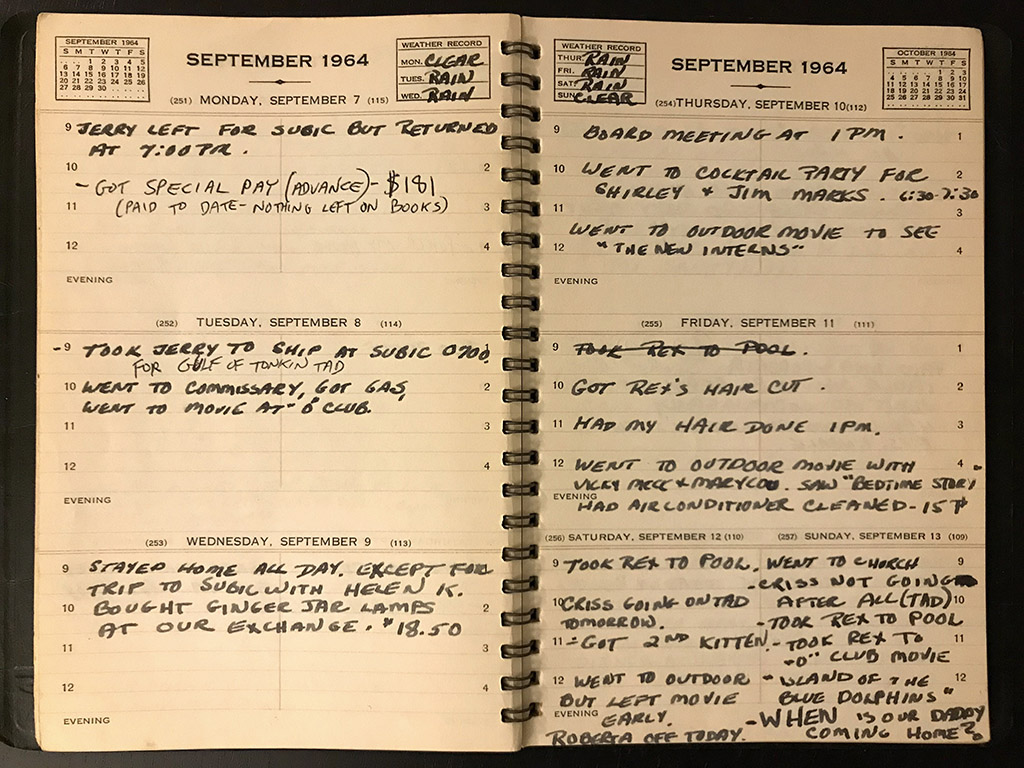 SEPTEMBER 1964
S M T W T F S
1 2 3 4 5
6 7 8 9 10 11 12
13 14 15 16 17 18 19
20 21 22 23 24 25 26
27 28 29 30
SEPTEMBER 1964
WEATHER RECORD
MON. CLEAR
TUES. RAIN
WED. RAIN
(251) MONDAY, SEPTEMBER 7 (115)
9 JERRY LEFT FOR SUBIC BUT RETURNED
AT 7:00 PM.
10 2
- GOT SPECIAL PAY (ADVANCE) - $181
11 (PAID TO DATE - NOTHING LEFT ON BOOKS) 3
12 4
EVENING
(252) TUESDAY, SEPTEMBER 8 (114)
- 9 TOOK JERRY TO SHIP AT SUBIC 0700 1
FOR GULF OF TONKIN TAD
10 WENT TO COMMISSARY, GOT GAS, 2
WENT TO MOVIE AT "O" CLUB.
11 3
12 4
EVENING
(253) WEDNESDAY, SEPTEMBER 9 (113)
9 STAYED HOME ALL DAY. EXCEPT FOR
TRIP TO SUBIC WITH HELEN K.
10 BOUGHT GINGER JAR LAMPS 2
AT OUR EXCHANGE. $18.50
11 3
12 4
EVENING
WEATHER RECORD
THUR. RAIN
FRI. RAIN
SAT. RAIN
SUN. CLEAR
SEPTEMBER 1964
OCTOBER 1964
S M T W T F S
1 2 3
4 5 6 7 8 9 10
11 12 13 14 15 16 17
18 19 20 21 22 23 24
25 26 27 28 29 30 31
(254) THURSDAY, SEPTEMBER 10 (112)
9 BOARD MEETING AT 1 PM. 1
10 WENT TO COCKTAIL PARTY FOR 2
SHIRLEY & JIM MARKS. 6:30-7:30
11 3
WENT TO OUTDOOR MOVIE TO SEE
12 "THE NEW INTERNS" 4
EVENING
(255) FRIDAY, SEPTEMBER 11 (111)
9 TOOK REX TO POOL. 1
10 GOT REX'S HAIR CUT. 2
11 HAD MY HAIR DONE 1 PM. 3
12 WENT TO OUTDOOR MOVIE WITH 4
VICKY MCC & MARYLOU. SAW "BEDTIME STORY
EVENING HAD AIRCONDITIONER CLEANED - 15 ₱
(256) SATURDAY, SEPTEMBER 12 (110)
9 TOOK REX TO POOL.
10 CRISS GOING ON TAD
TOMORROW.
11 - GOT 2ND KITTEN.
12 WENT TO OUTDOOR
BUT LEFT MOVIE
EVENING EARLY.
ROBERTA OFF TODAY.
(257) SUNDAY, SEPTEMBER 13 (109)
WENT TO CHURCH 9
- CRISS NOT GOING
AFTER ALL (TAD) 10
- TOOK REX TO POOL
- TOOK REX TO 11
"O" CLUB MOVIE
"ISLAND OF THE 12
BLUE DOLPHINS"
- WHEN IS OUR DADDY
COMING HOME?